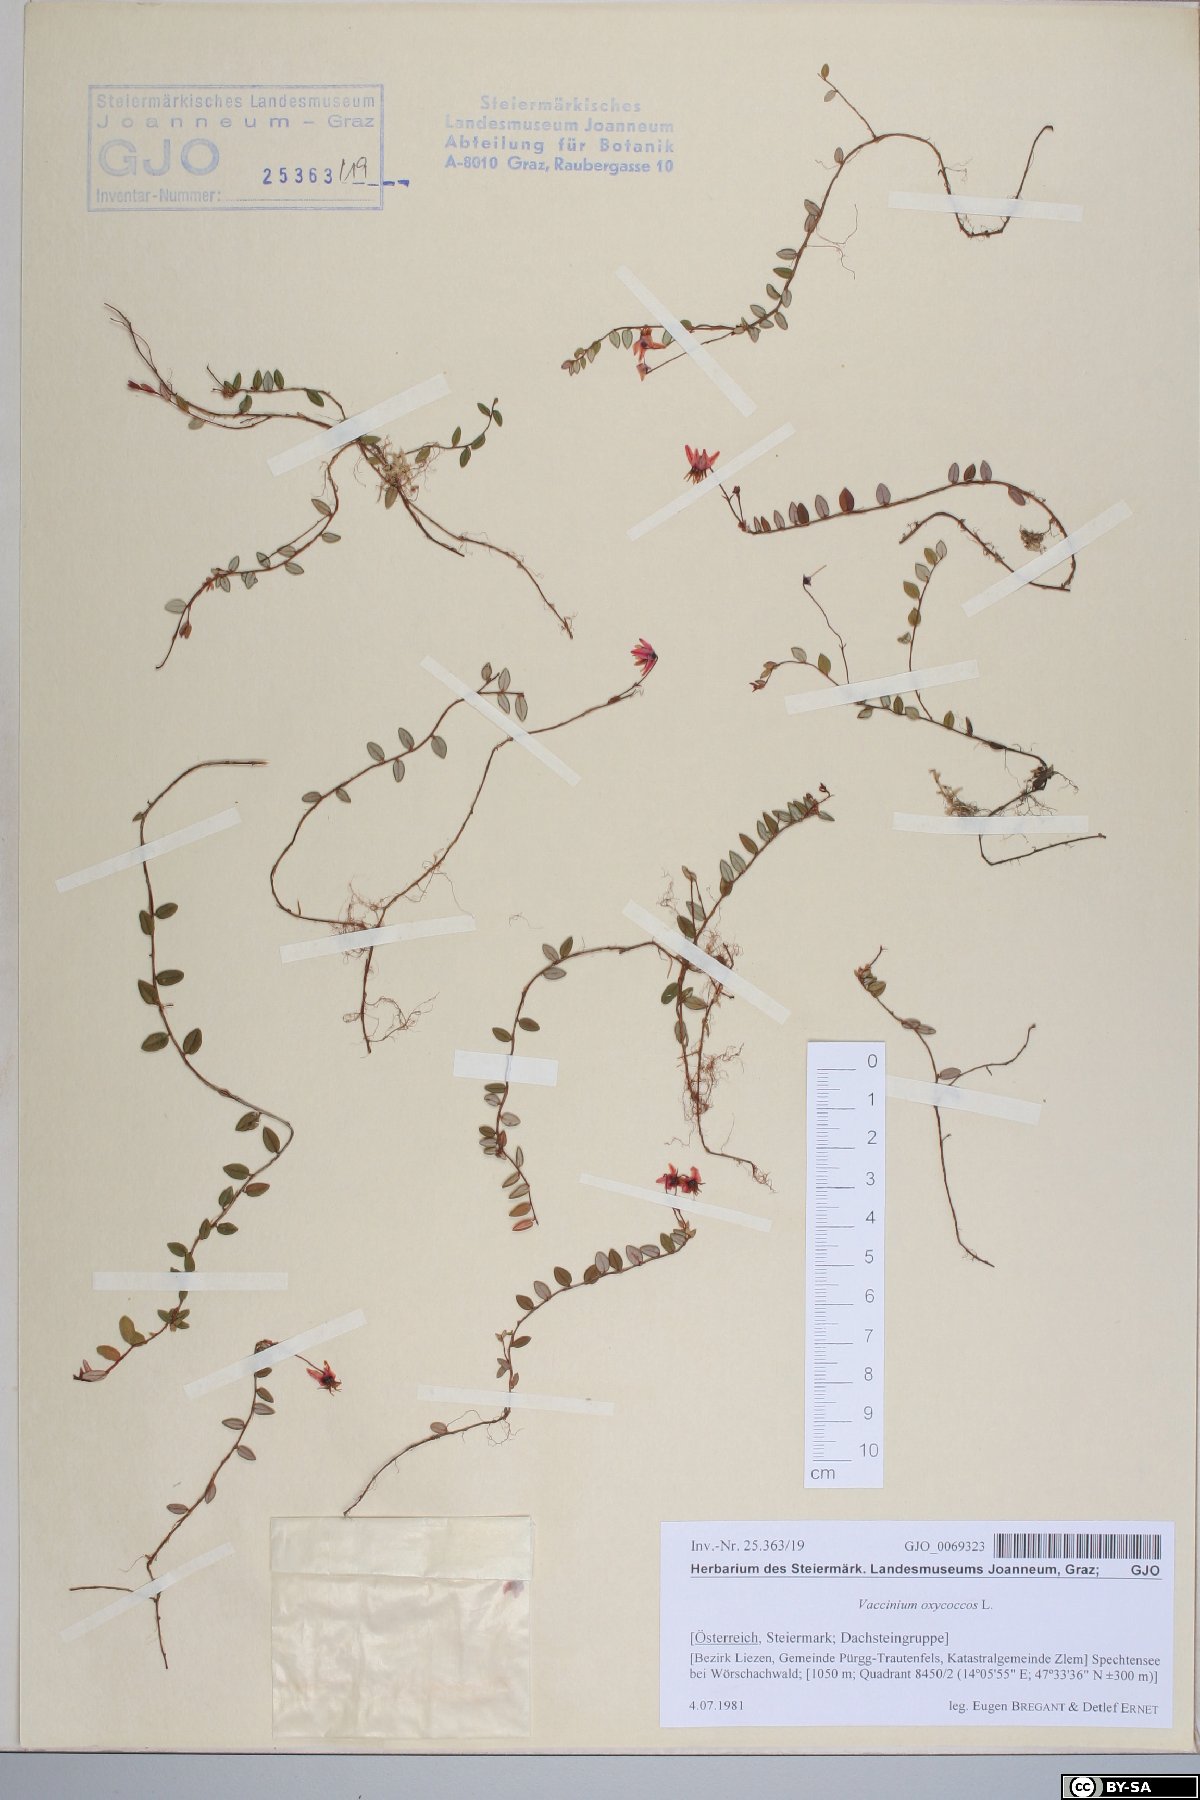 Steiermärkisches Landesmuseum
Joanneum - Graz
GJO
25363/19
Inventar-Nummer:
Steiermärkisches
Landesmuseum Joanneum
Abteilung für Botanik
A-8010 Graz, Raubergasse 10
0
1
2
3
4
5
6
7
8
9
10
cm
Inv.-Nr. 25.363/19 GJO_0069323
Herbarium des Steiermärk. Landesmuseums Joanneum, Graz; GJO
Vaccinium oxycoccos L.
[Österreich, Steiermark; Dachsteingruppe]
[Bezirk Liezen, Gemeinde Pürgg-Trautenfels, Katastralgemeinde Zlem] Spechtensee
bei Wörschachwald; [1050 m; Quadrant 8450/2 (14°05'55" E; 47°33'36" N ±300 m)]
4.07.1981 leg. Eugen BREGANT & Detlef ERNET
cc BY-SA